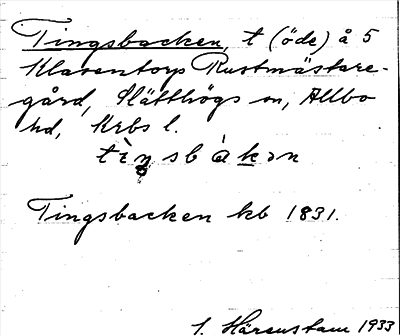 Tingsbacken, t (öde) å 5
Klasentorps Rustmästare-
gård, Slätthögs sn, Allbo
hd, Krbs l.
tìŋsbàkən
Tingsbacken kb 1831.
S. Härenstam 1933